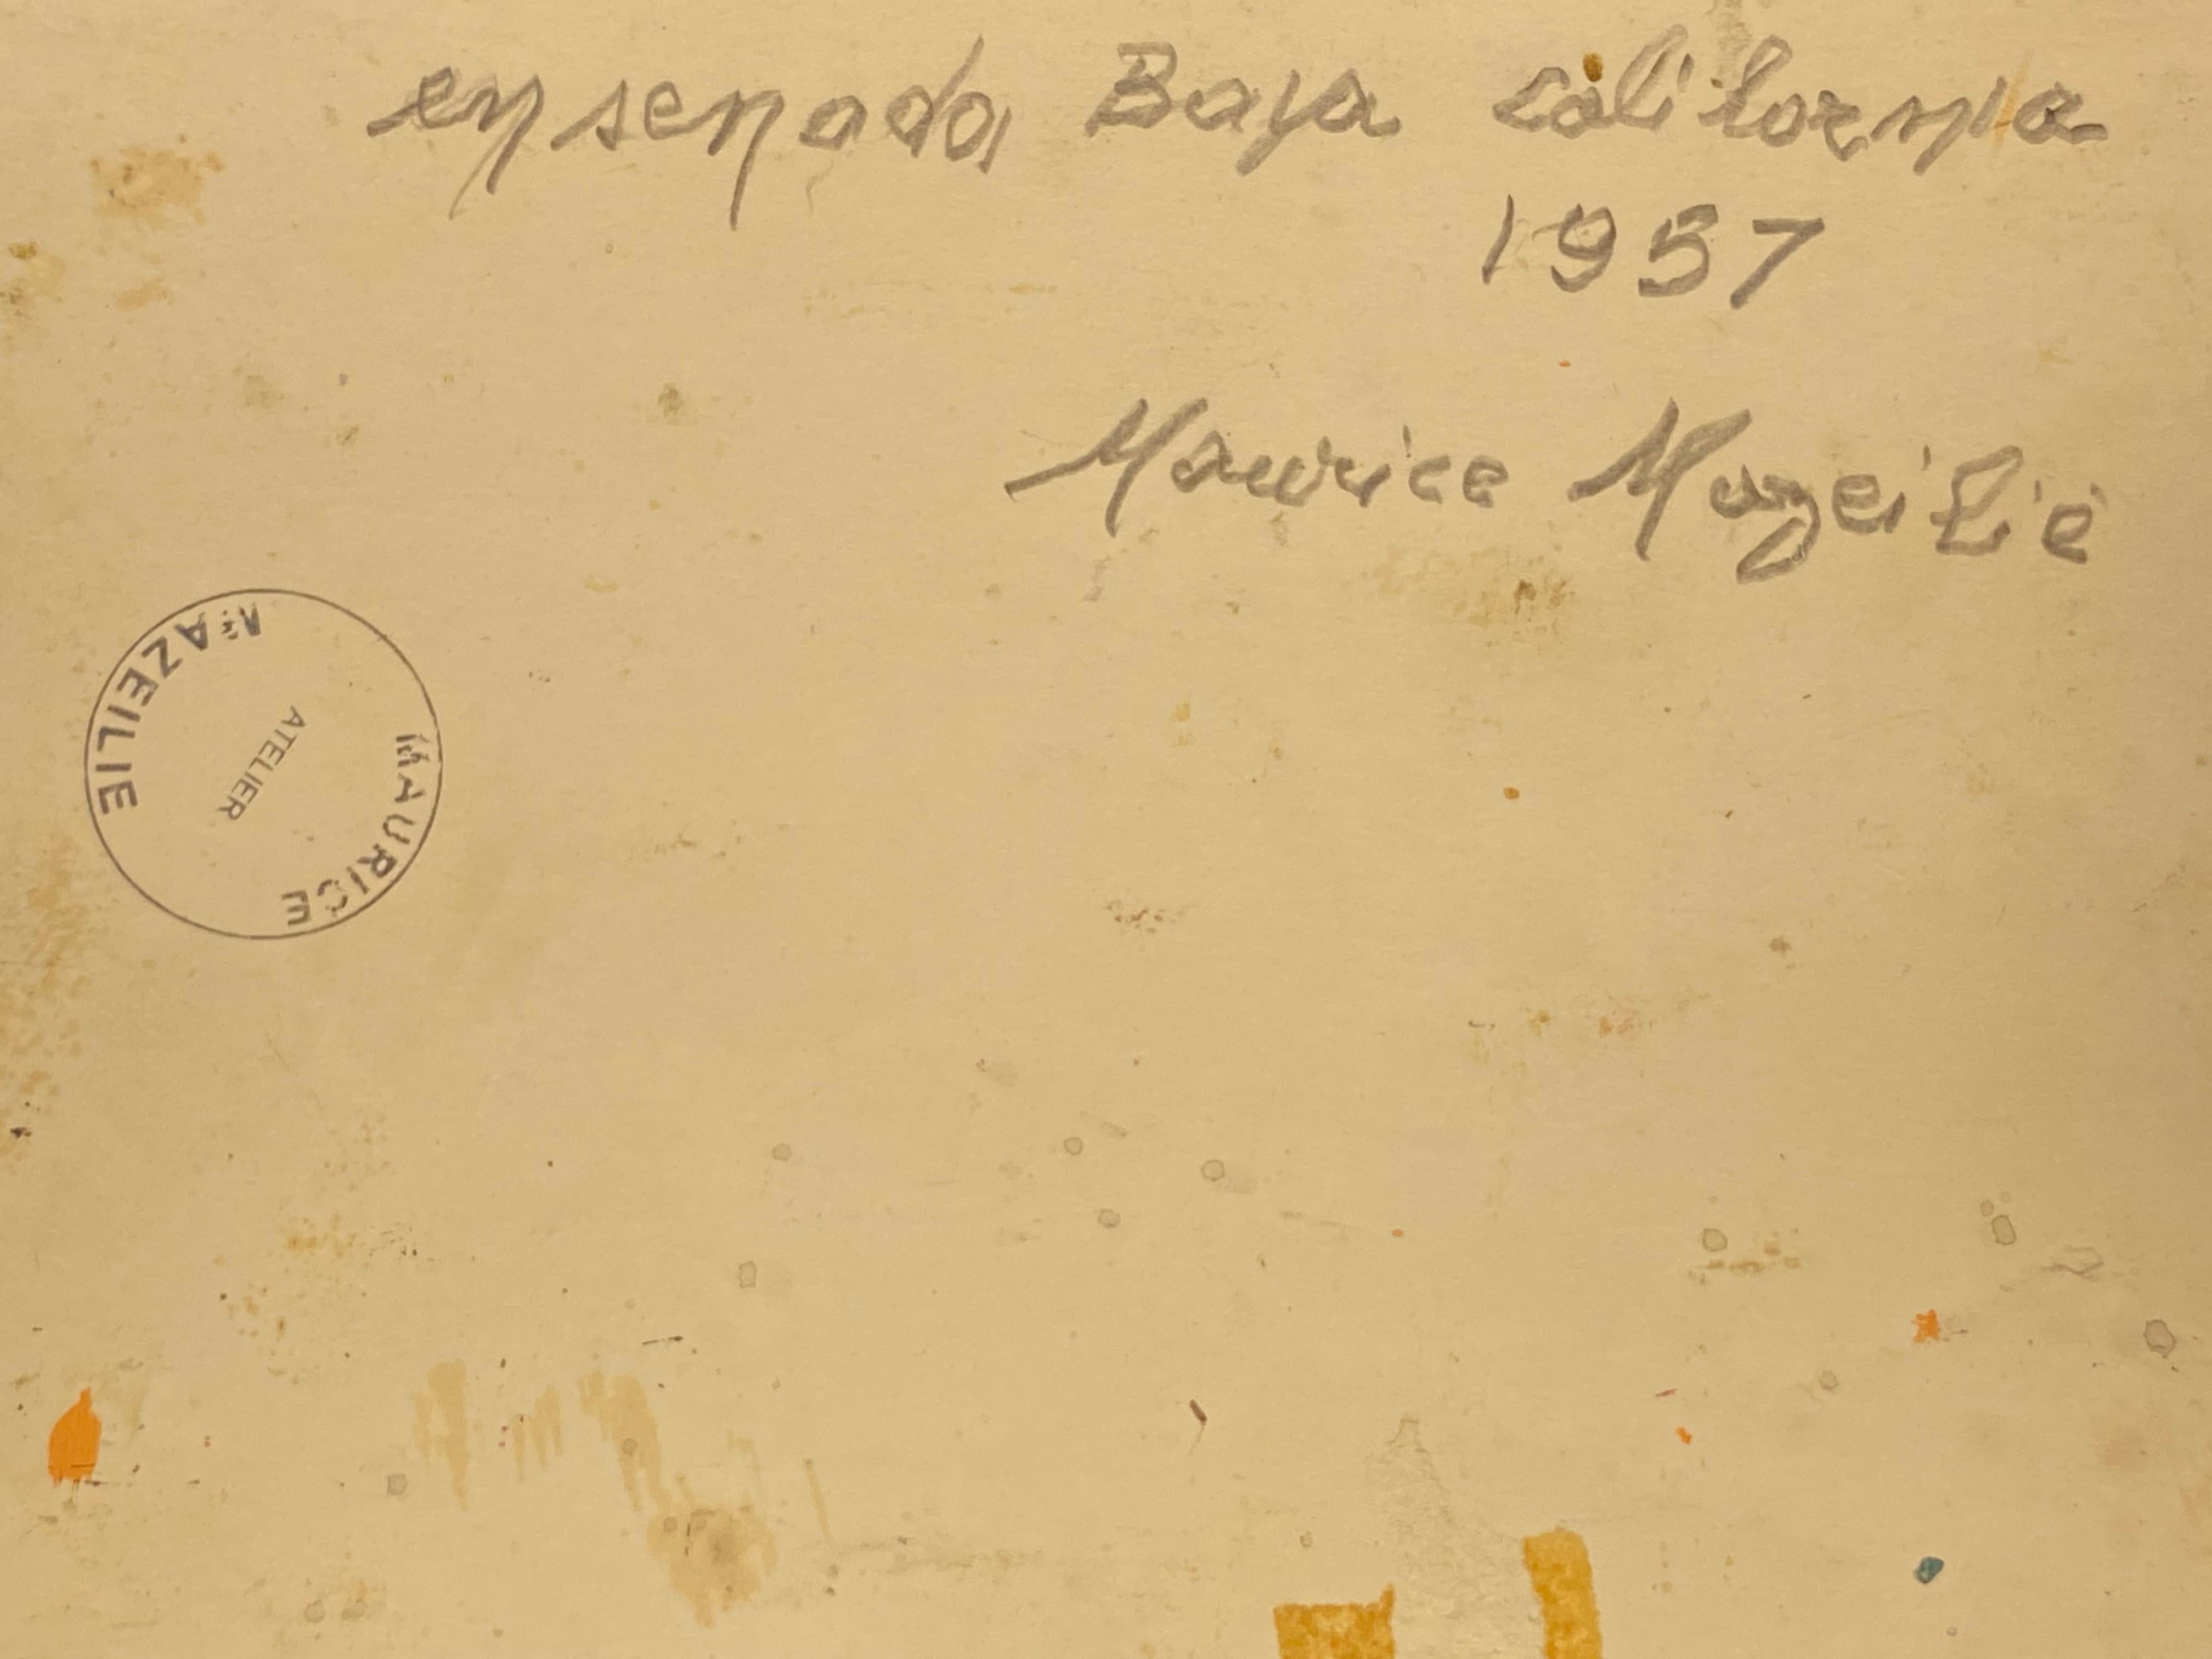 ensenada Baja California
1957
Maurice Mazeilie
MAURICE MAZEILIE
ATELIER